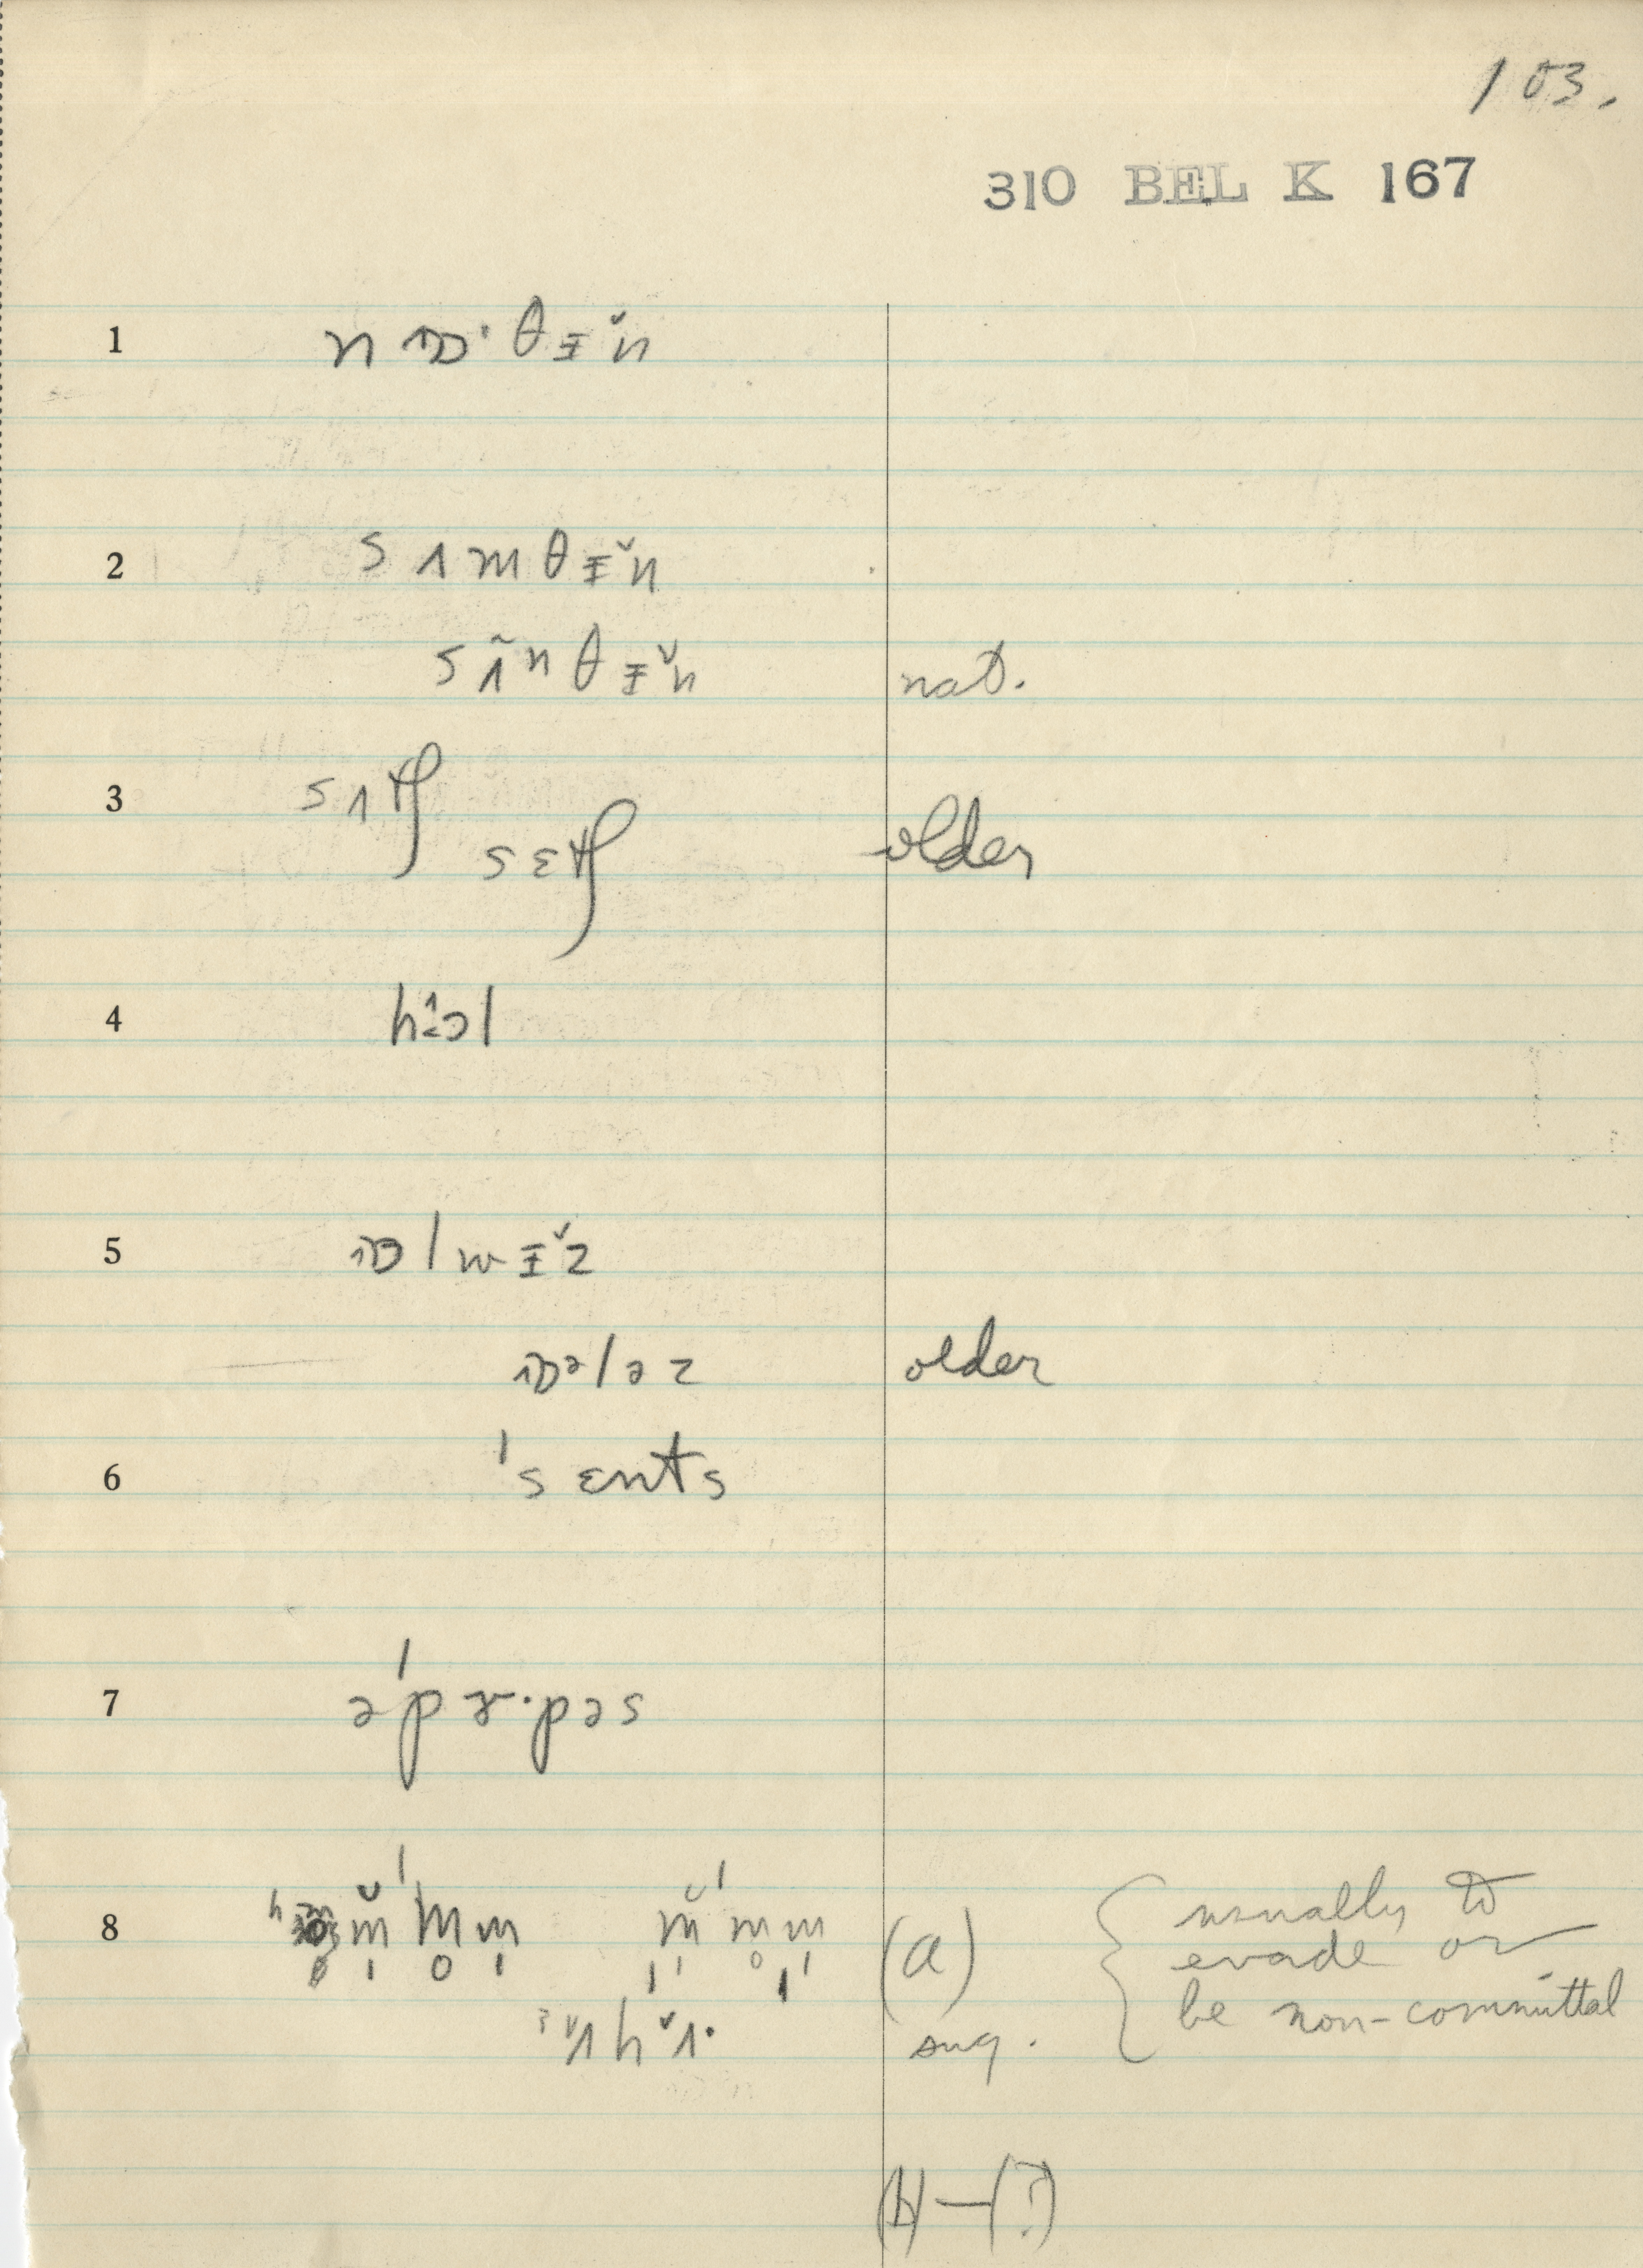 103.
310 BEL K 167
1 n ɒ· θ ɪ̵̆ n
2 s ʌ m θ ɪ̵̆ n
s ʌ̃ ⁿ θ ɪ̵̆ n nat.
3 s ʌ tʃ
s ɛ tʃ older
4 h l
5 ɒ l w ɪ̵̆ z
ɒᵊ l ə z older
6 's ɛnts
7 ə'p ɝ·pəs
8 (a) usually to
evade or
sug. be non-committal
(b) — (?)